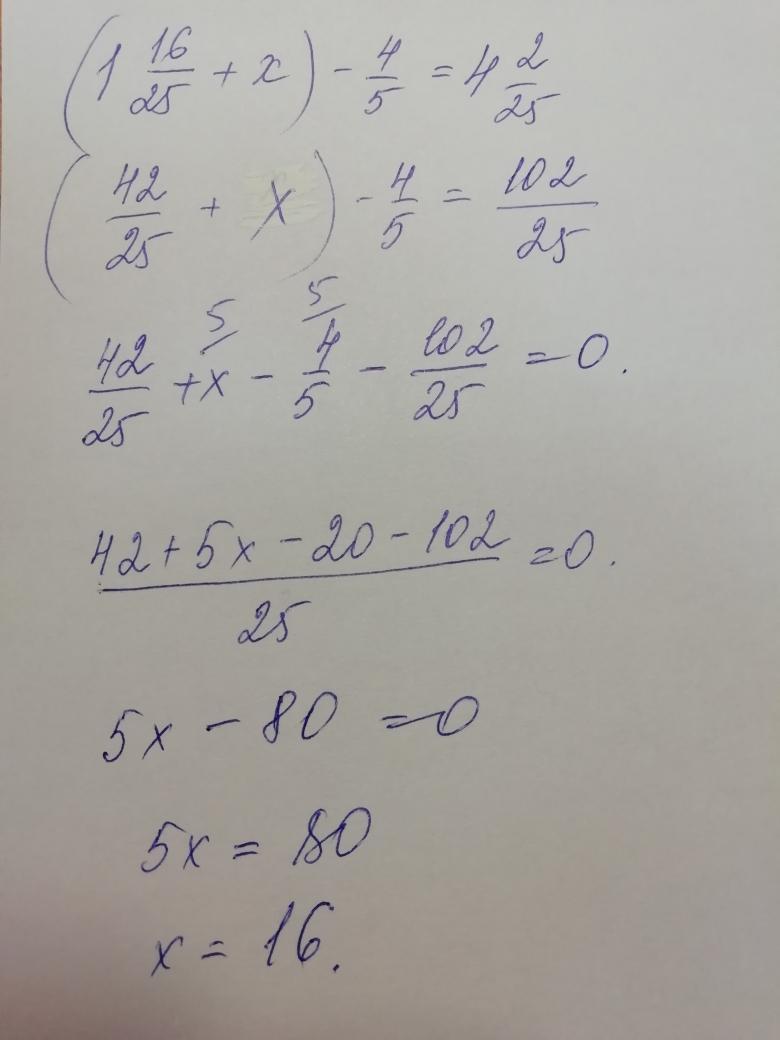 (1 16/25 + x) - 4/5 = 4 2/25
(42/25 + x) - 4/5 = 102/25
5/ 5/
42/25 + x - 4/5 - 102/25 = 0.
(42 + 5x - 20 - 102)/25 = 0.
5x - 80 = 0
5x = 80
x = 16.